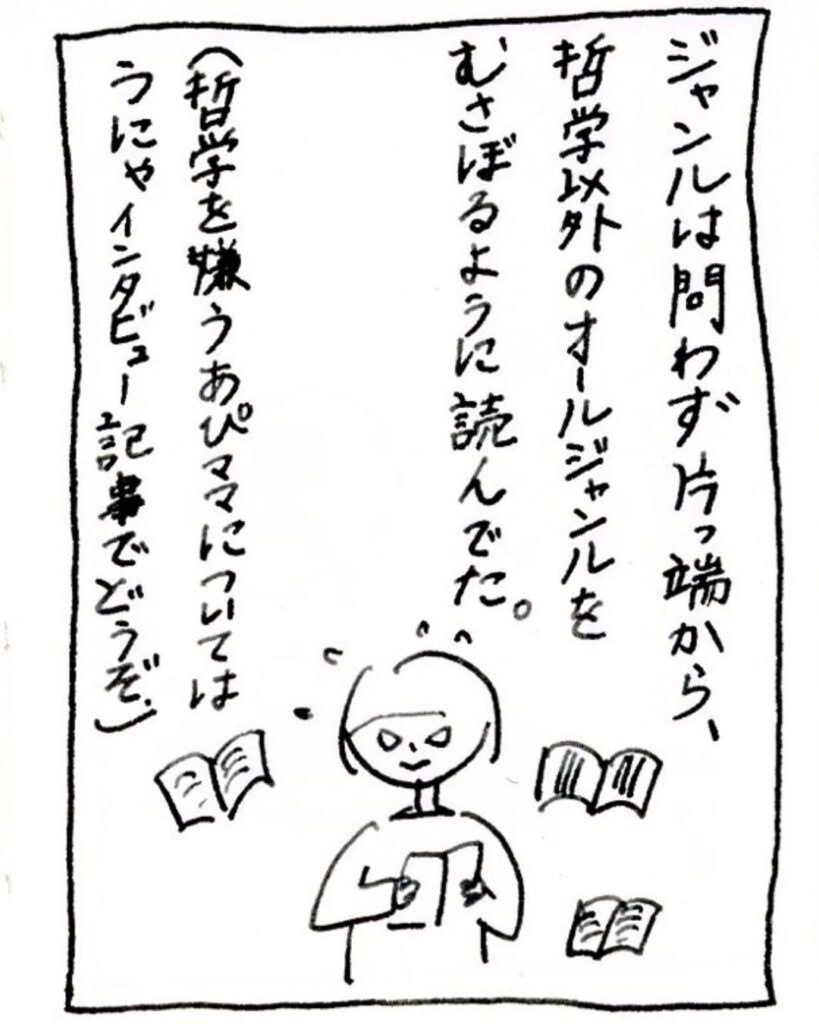 ジャンルは問わず片っ端から、
哲学以外のオールジャンルを
むさぼるように読んでた。
(哲学を嫌うあぴママについては
うにゃインタビュー記事でどうぞ。)